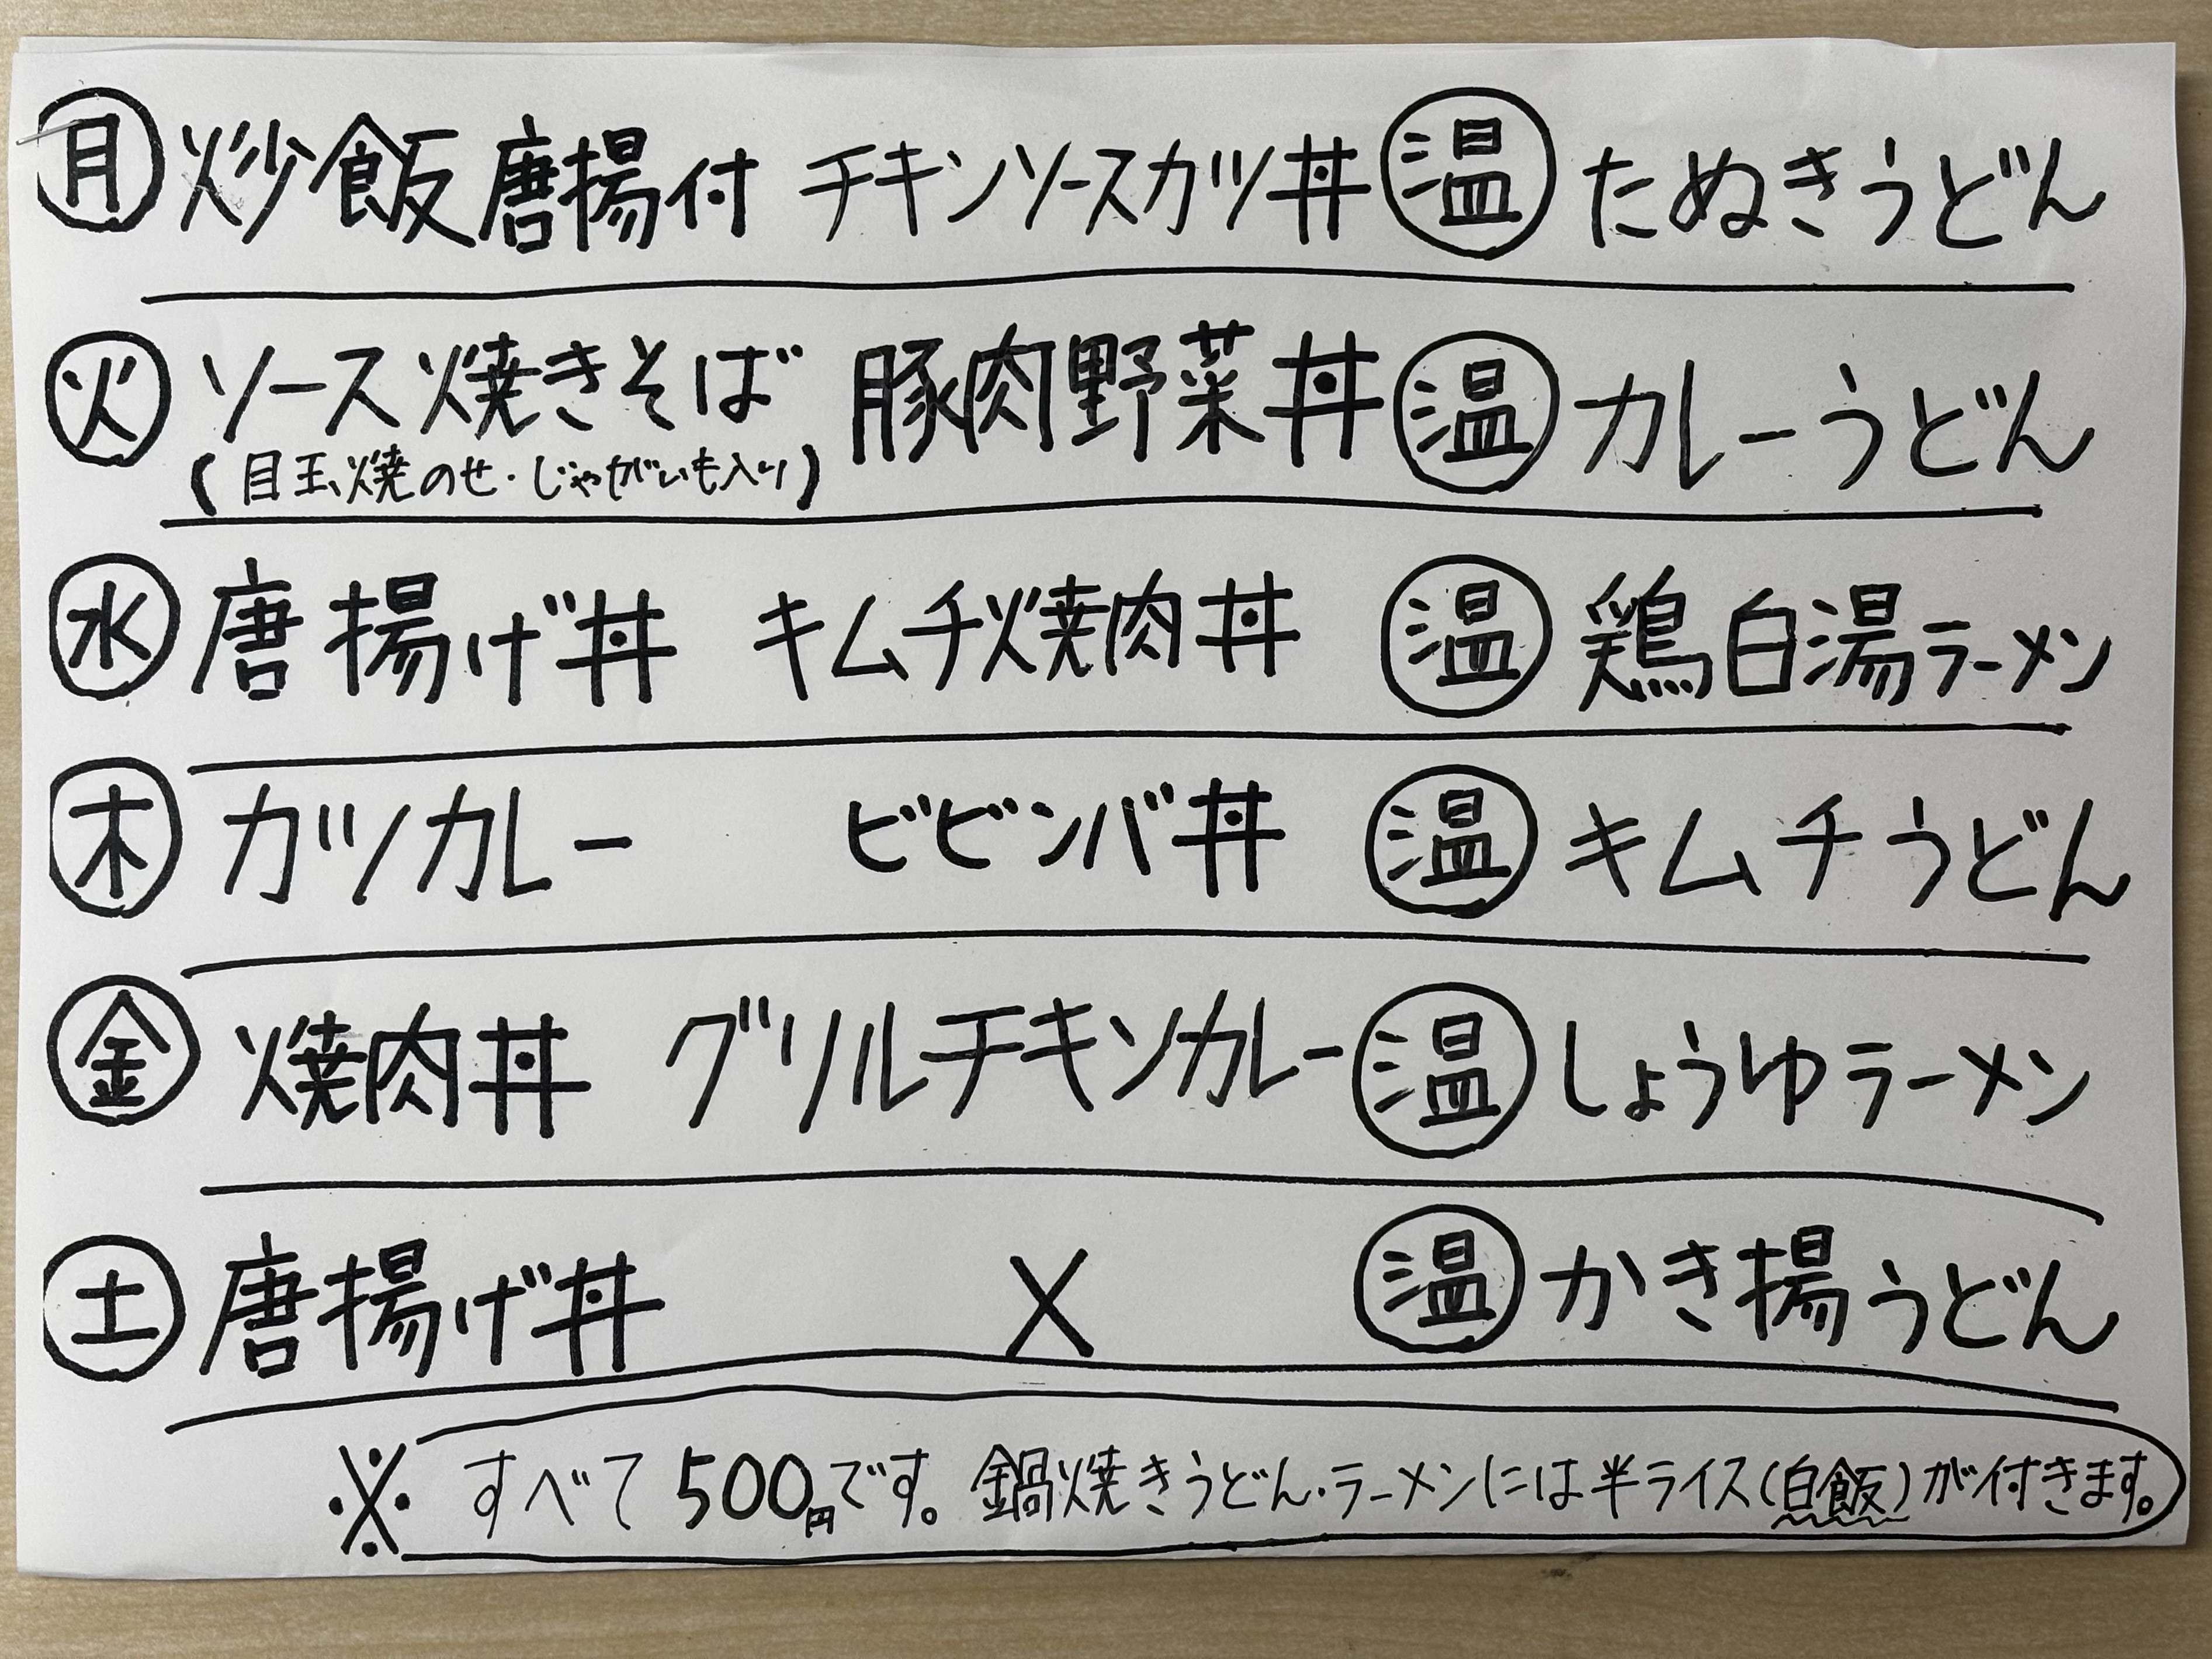 ㊊ 炒飯唐揚付 チキンソースカツ丼 温 たぬきうどん
㊋ ソース焼きそば 豚肉野菜丼 温 カレーうどん
(目玉焼のせ・じゃがいも入り)
㊌ 唐揚げ丼 キムチ焼肉丼 温 鶏白湯ラーメン
㊍ カツカレー ビビンバ丼 温 キムチうどん
㊎ 焼肉丼 グリルチキンカレー 温 しょうゆラーメン
㊏ 唐揚げ丼 × 温 かき揚うどん
※ すべて500円です。鍋焼きうどん・ラーメンには半ライス(白飯)が付きます。